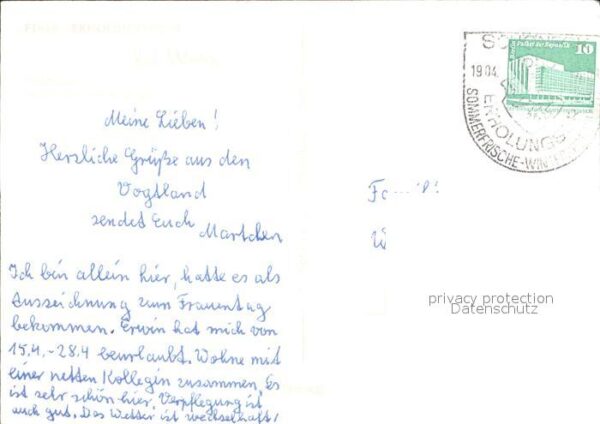 Meine Lieben!
Herzliche Grüße aus den
Vogtland
sendet Euch
Martchen
Ich bin allein hier, hatte es als
Auszeichnung zum Frauentag
bekommen. Erwin hat mich von
15.4.-28.4 beurlaubt. Wohne mit
einer netten Kollegin zusammen. Es
ist sehr schön hier. Verpflegung ist
auch gut. Das Wetter ist wechselhaft,
10
19.04.
ERHOLUNGS
SOMMERFRISCHE-WIN
privacy protection
Datenschutz